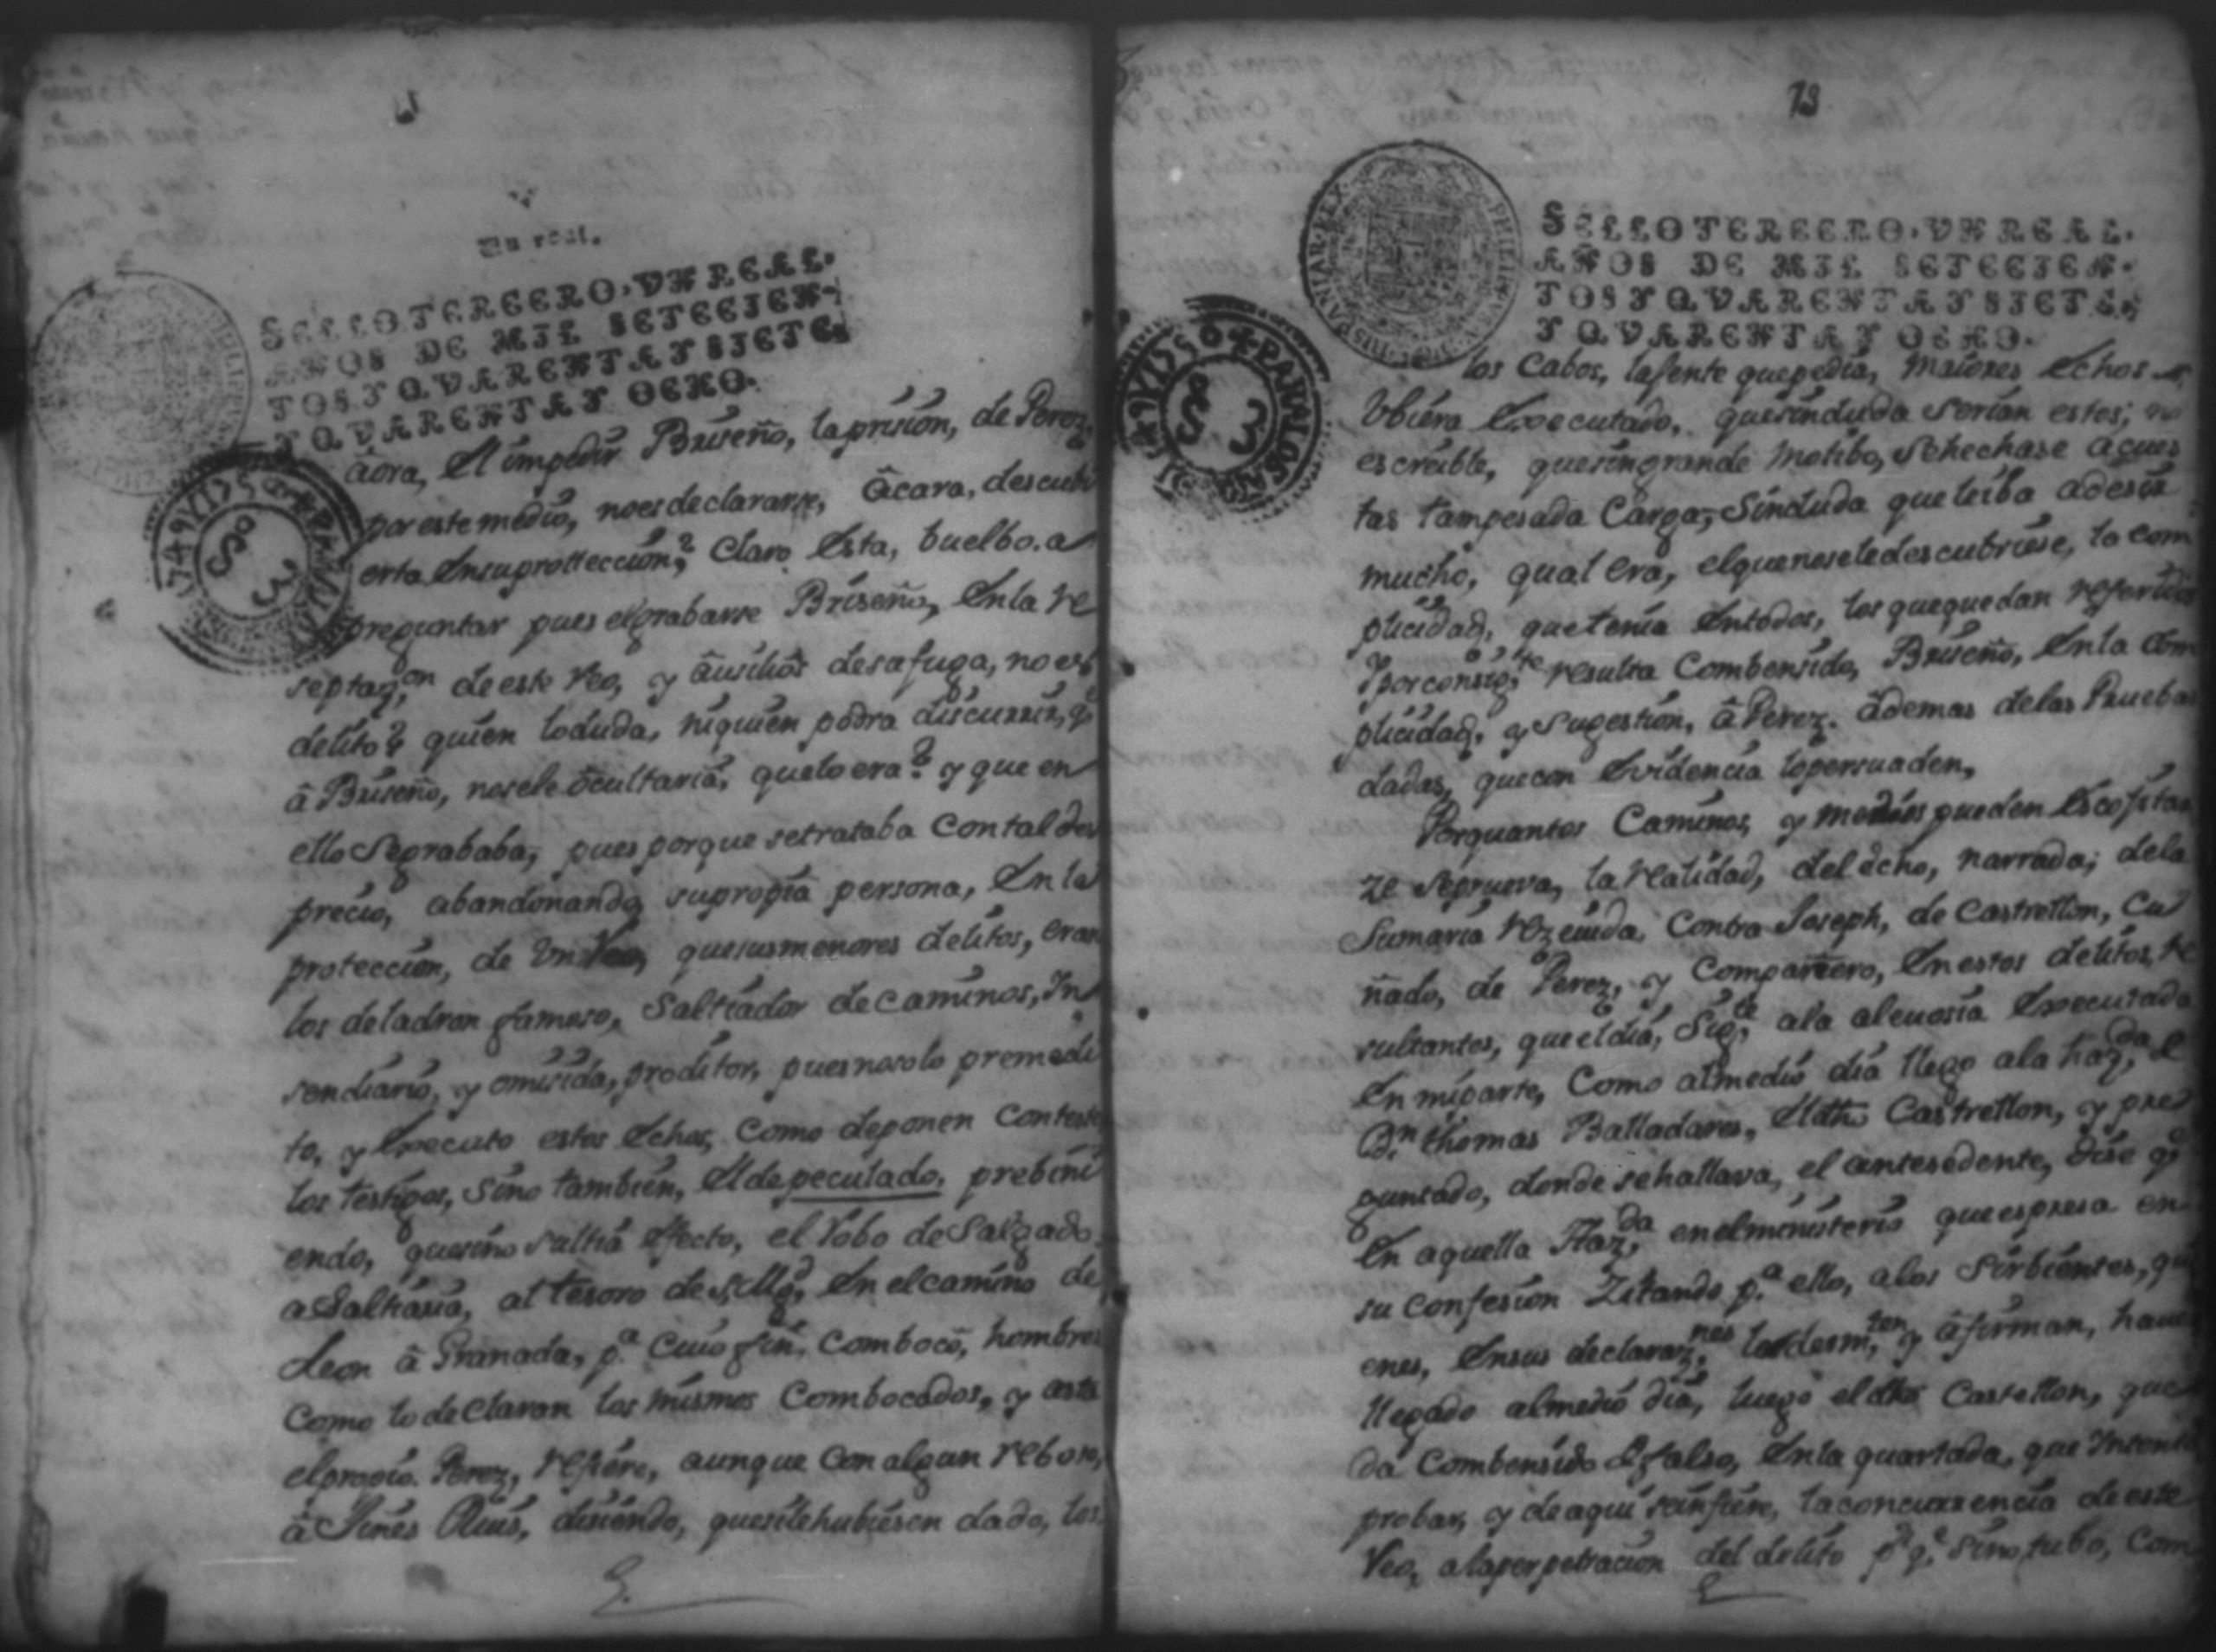 Un real.
SELLO TERCERO, VN REAL,
AÑOS DE MIL SETECIEN-
TOS Y QVARENTA Y SIETE,
Y QVARENTA Y OCHO.
âora, El impedir Briseño, la prision, de Perez,
por este medio, no es declararse, âcara, descubi
erta En su protteccion,? Claro Esta, buelbo. a
preguntar pues el grabarse Briseño, En la re
septaz,on de este reo, y âusilios de sa fuga, no es
delito? quien lo duda, ni quien podra discurrir, q.e
â Briseño, no se le ôcultaria, que lo era? y que en
ello Se grababa, pues porque se trataba con tal des
precio, abandonando su propia persona, En la
proteccion, de Vn Reo, que sus menores delitos, eran
los de ladron famoso, Saltiador de caminos, Yn
sendiario, y omisida, proditor, pues no solo premedi
to, y Executo estos Echos, Como deponen Contestes
los testigos, Sino tambien, El de peculado, prebini
endo, que sino surtia Efecto, el Robo de Salgado
a Saltiaria, al tesoro de S, Mg,d En el camino de
Leon â Granada, p.a Cuio fin, Combocô, hombres
Como lo declaran los mismos Combocados, y aste
el propio Perez, refiere, aunque con algun reboso,
â Jines Ruis, disiendo, que si le hubiesen dado, los
73
PHILIPPVS V HISPANIAR REX
SELLO TERCERO, VN REAL,
AÑOS DE MIL SETECIEN-
TOS Y QVARENTA Y SIETE,
Y QVARENTA Y OCHO.
1749 Y 1750 PARA LOS AÑOS
los Cabos, la jente que pedia, maiores Echos
Vbiera Executado, que sin duda serian estos; no
es creible, que sin grande Motibo, Se hechase acues
tas tan pesada Carga, Sin duda que le iba adesir
mucho, qual era, el que no se le descubriese, la com
plicidad, que tenia En todos, los que quedan referidos
Y por consig,te resulta Combensido, Briseño, En la Com
plicidad, y Sugestion, â Perez. âdemas de las Pruebas
dadas, que con Evidencia lo persuaden,
Por quantos Caminos, y medios pueden Escojitar
ze Se prueva, la realidad, del êcho, narrado, de la
Sumaria rezeuida, Contra Joseph, de Castrellon, Cu
ñado, de Perez, y Compañero, En estos delitos, re
sultantes, que el dia, Sig,te ala aleuosia Executada
En mi parte, Como al medio dia llego ala haz,da de
D.n thomas Balladares, El dho Castrellon, y pre
guntado, donde se hallava, el antesedente, dise q.e
En aquella Haz,da en el ministerio que espresa en
su confesion Zitando p.a ello, alos Sirbientes, qui
enes, En sus declaraz,nes lo desm,ten y âfirman, haue
llegado al medio dia, luego el dho Castellon, que
da Combensido de falso, En la quartada, que Yntento
probar, y de aqui se infiere, la concurrencia de este
Reo, ala perpetracion del delito p.r q.e Si no tubo, Com